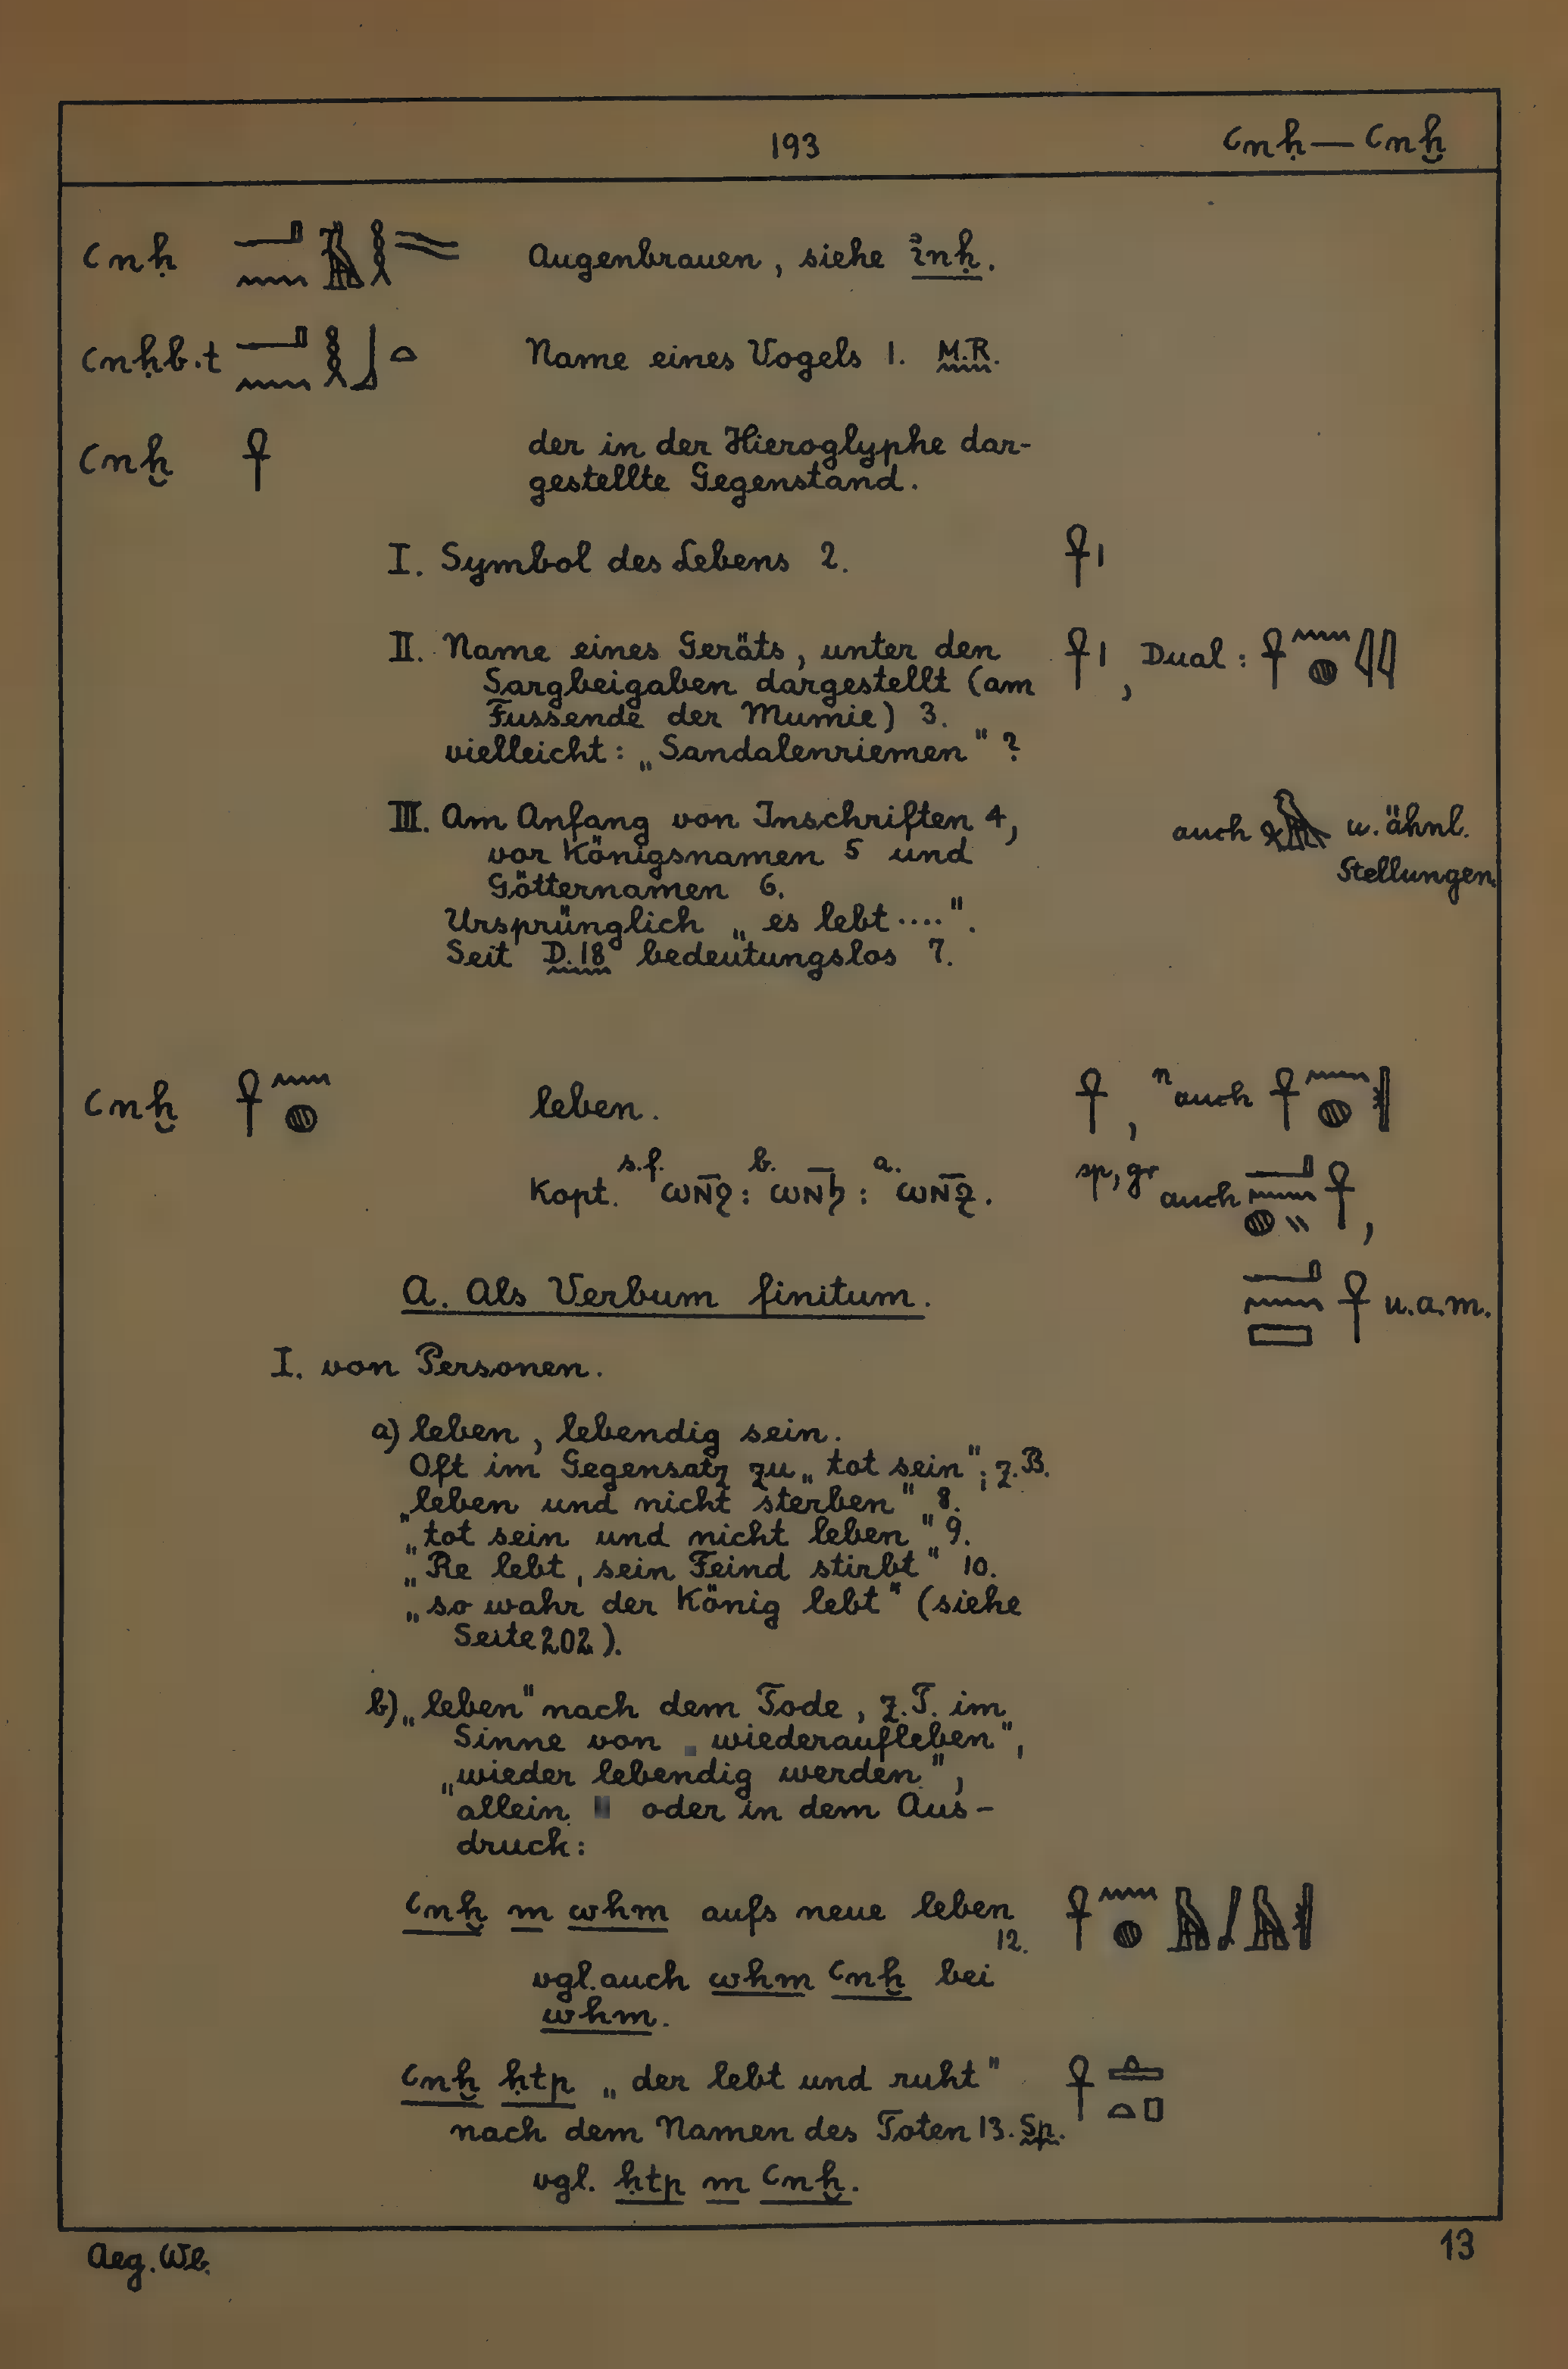 193 ꜥnḥ — ꜥnḫ
ꜥnḥ Augenbrauen, siehe i҆nḥ.
ꜥnḥb.t Name eines Vogels 1. M.R.
ꜥnḫ 𓋹 der in der Hieroglyphe dar-
gestellte Gegenstand.
I. Symbol des Lebens 2. 𓋹𓏤
II. Name eines Geräts, unter den 𓋹𓏤, Dual: 𓋹𓈖𓐍
Sargbeigaben dargestellt (am
Fussende der Mumie) 3.
vielleicht: „Sandalenriemen" ?
III. Am Anfang von Inschriften 4, auch u. ähnl.
vor Königsnamen 5 und Stellungen
Götternamen 6.
Ursprünglich „es lebt ....".
Seit D.18 bedeutungslos 7.
ꜥnḫ 𓋹𓈖𓐍 leben. 𓋹, n auch 𓋹𓈖𓐍𓏛
Kopt. s.f. ⲱⲛ̄ϩ : b. ⲱⲛ̄ϧ : a. ⲱⲛ̄ⳉ. sp, gr auch 𓂝𓈖𓐍𓏭𓋹,
A. Als Verbum finitum. 𓂝𓈖𓈙𓋹 u.a.m.
I. von Personen.
a) leben, lebendig sein.
Oft im Gegensatz zu „tot sein"; z.B.
„leben und nicht sterben" 8.
„tot sein und nicht leben" 9.
„Re lebt, sein Feind stirbt" 10.
„so wahr der König lebt" (siehe
Seite 202).
b) „leben" nach dem Tode, z.T. im
Sinne von wiederaufleben",
„wieder lebendig werden",
allein oder in dem Aus-
druck:
ꜥnḫ m whm aufs neue leben 12. 𓋹𓈖𓐍𓅓𓄙𓅓𓏛
vgl. auch whm ꜥnḫ bei
whm.
ꜥnḫ ḥtp „der lebt und ruht" 𓋹𓊵𓏏𓊪
nach dem Namen des Toten 13. Sp.
vgl. ḥtp m ꜥnḫ.
Aeg. Wb. 13